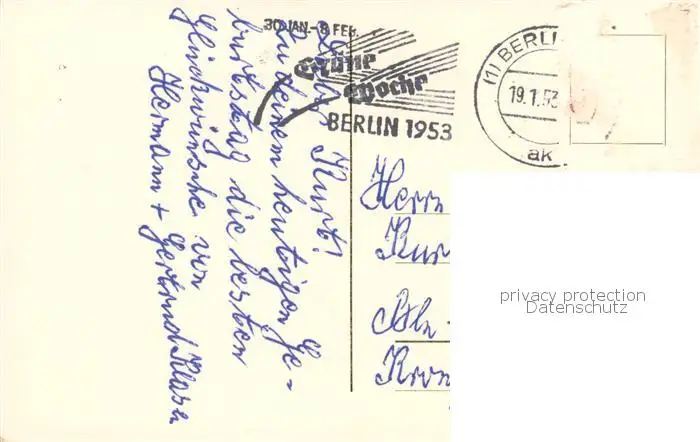 30. JAN.-8. FEB.
Grüne
Woche
BERLIN 1953
(1) BERLI
19.1.53
ak
Lieber Kurt!
Zu deinem heutigen Ge-
burtstag die besten
Glückwünsche von
Hermann + Gertrud
Herrn
Kur
Bln.-
Kron
privacy protection
Datenschutz